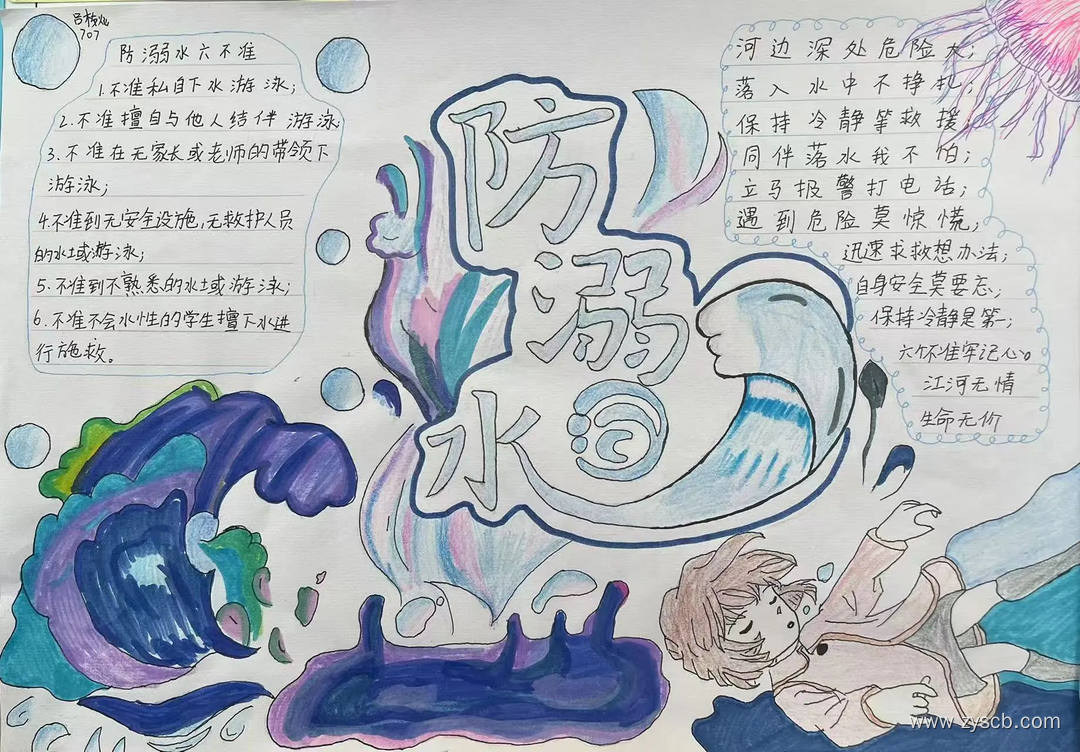 707
防溺水六不准
1.不准私自下水游泳;
2.不准擅自与他人结伴游泳
3.不准在无家长或老师的带领下
游泳;
4.不准到无安全设施,无救护人员
的水域游泳;
5.不准到不熟悉的水域游泳;
6.不准不会水性的学生擅下水进
行施救。
防
溺
水
河边深处危险大;
落入水中不挣扎;
保持冷静等救援;
同伴落水我不怕;
立马报警打电话;
遇到危险莫惊慌;
迅速求救想办法;
自身安全莫要忘;
保持冷静是第一;
六个不准牢记心。
江河无情
生命无价
www.zyscb.com